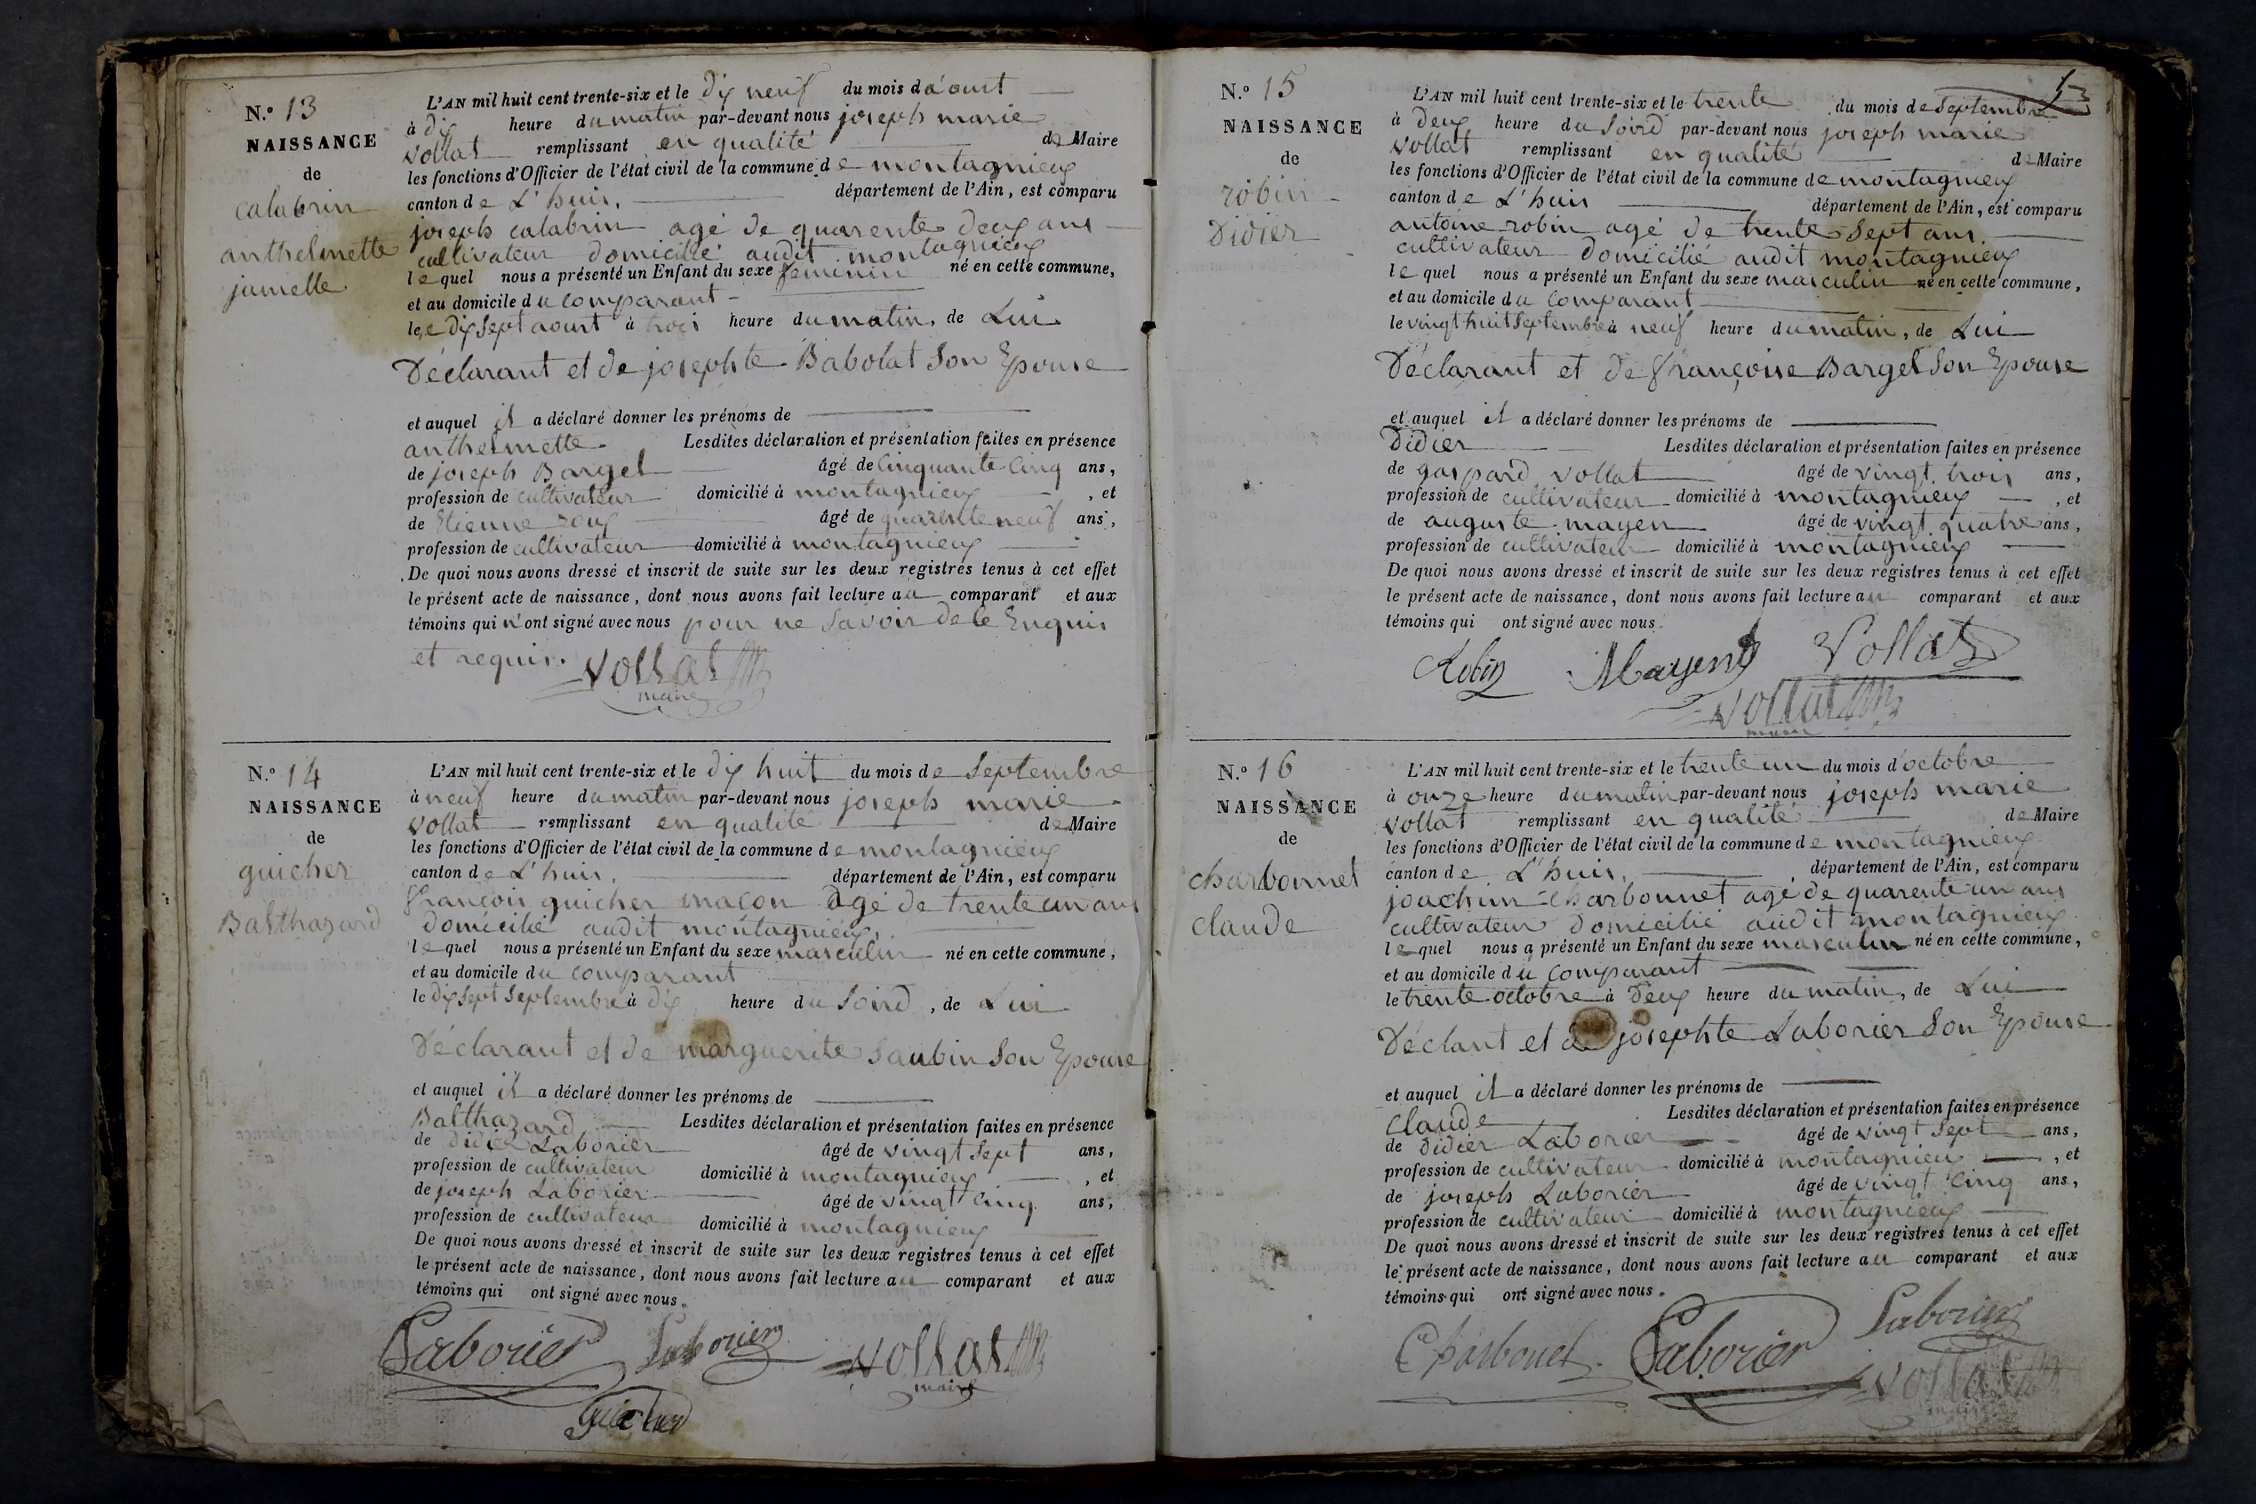 N.º 13
NAISSANCE
de
calabrin
anthelmette
jumelle
L'AN mil huit cent trente-six et le dix neuf du mois d'aout
à dix heure du matin par-devant nous joseph marie
vollat remplissant en qualité de Maire
les fonctions d'Officier de l'état civil de la commune de montagnieux
canton de L'huis. département de l'Ain, est comparu
joseph calabrin agé de quarente deux ans
cultivateur domicilié audit montagnieux
lequel nous a présenté un Enfant du sexe feminin né en cette commune,
et au domicile du comparant
le dix sept aout à trois heure du matin, de Lui
Déclarant et de josephte Babolat Son Epouse
et auquel il a déclaré donner les prénoms de
anthelmette. Lesdites déclaration et présentation faites en présence
de joseph Barget âgé de Cinquante Cinq ans,
profession de cultivateur domicilié à montagnieux , et
de Etienne roux âgé de quarente neuf ans,
profession de cultivateur domicilié à montagnieux
De quoi nous avons dressé et inscrit de suite sur les deux registres tenus à cet effet
le présent acte de naissance, dont nous avons fait lecture au comparant et aux
témoins qui n'ont signé avec nous pour ne Savoir de le Enquis
et requis. Vollat
maire
N.º 14
NAISSANCE
de
guicher
Balthazard
L'AN mil huit cent trente-six et le dix huit du mois de Septembre
à neuf heure du matin par-devant nous joseph marie
vollat remplissant en qualité de Maire
les fonctions d'Officier de l'état civil de la commune de montagnieux
canton de L'huis. département de l'Ain, est comparu
françois guicher macon agé de trente un ans
domicilié audit montagnieux,
lequel nous a présenté un Enfant du sexe masculin né en cette commune,
et au domicile du comparant
le dix sept Septembre à dix heure du Soird, de Lui
Déclarant et de marguerite Saubin Son Epouse
et auquel il a déclaré donner les prénoms de
Balthazard Lesdites déclaration et présentation faites en présence
de didier Laborier âgé de vingt Sept ans,
profession de cultivateur domicilié à montagnieux , et
de joseph Laborier âgé de vingt Cinq ans,
profession de cultivateur domicilié à montagnieux
De quoi nous avons dressé et inscrit de suite sur les deux registres tenus à cet effet
le présent acte de naissance, dont nous avons fait lecture au comparant et aux
témoins qui ont signé avec nous.
Laborier Laborier Vollat
maire
Guicher
N.º 15
NAISSANCE
de
robin
Didier
L'AN mil huit cent trente-six et le trente du mois de Septembre
à deux heure du Soird par-devant nous joseph marie
vollat remplissant en qualité de Maire
les fonctions d'Officier de l'état civil de la commune de montagnieux
canton de L'huis département de l'Ain, est comparu
antoine robin agé de trente Sept ans.
cultivateur domicilié audit montagnieux
lequel nous a présenté un Enfant du sexe masculin né en cette commune,
et au domicile du comparant
le vingt huit Septembre à neuf heure du matin, de Lui
Déclarant et de françoise Barget Son Epouse
et auquel il a déclaré donner les prénoms de
Didier Lesdites déclaration et présentation faites en présence
de gaspard vollat âgé de vingt trois ans,
profession de cultivateur domicilié à montagnieux , et
de auguste mayen âgé de vingt quatre ans,
profession de cultivateur domicilié à montagnieux
De quoi nous avons dressé et inscrit de suite sur les deux registres tenus à cet effet
le présent acte de naissance, dont nous avons fait lecture au comparant et aux
témoins qui ont signé avec nous.
Robin Mayen Vollat
vollat
maire
N.º 16
NAISSANCE
de
charbonnet
claude
L'AN mil huit cent trente-six et le trente un du mois d'octobre
à onze heure du matin par-devant nous joseph marie
vollat remplissant en qualité de Maire
les fonctions d'Officier de l'état civil de la commune de montagnieux
canton de L'huis, département de l'Ain, est comparu
joachim charbonnet agé de quarente un ans
cultivateur domicilié audit montagnieux
lequel nous a présenté un Enfant du sexe masculin né en cette commune,
et au domicile du comparant
le trente octobre à deux heure du matin, de Lui
Déclant et de josephte Laborier Son Epouse
et auquel il a déclaré donner les prénoms de
claude Lesdites déclaration et présentation faites en présence
de didier Laborier âgé de vingt Sept ans,
profession de cultivateur domicilié à montagnieux , et
de joseph Laborier âgé de vingt Cinq ans,
profession de cultivateur domicilié à montagnieux
De quoi nous avons dressé et inscrit de suite sur les deux registres tenus à cet effet
le présent acte de naissance, dont nous avons fait lecture au comparant et aux
témoins qui ont signé avec nous.
Charbonet Laborier Laborier
vollat
maire